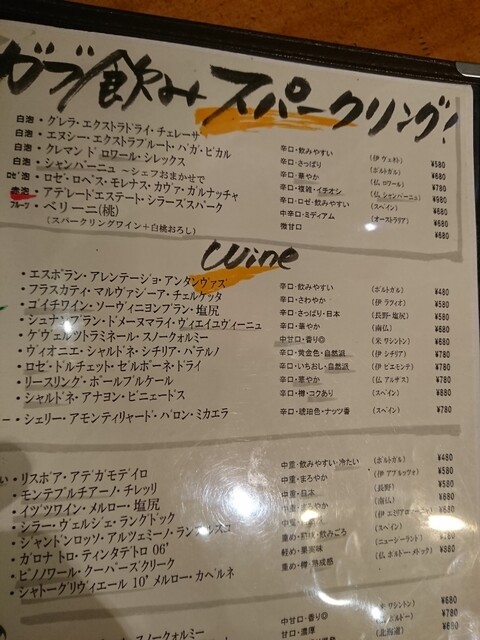 ガブ飲みスパークリング!
白泡・グレラ・エクストラドライ・チェレーザ 辛口・飲みやすい (伊 ヴェネト) ¥580
白泡・エヌシー・エクストラブルート・バガ・ビカル 辛口・さっぱり (ポルトガル) ¥680
白泡・クレマン ド ロワール・シレックス 辛口・華やか (仏 ロワール) ¥780
白泡・シャンパーニュ ~シェフおまかせで 辛口・複雑・イチオシ (仏 シャンパーニュ) ¥980
ロゼ泡・ロゼ・ロペス・モレナス・カヴァ・ガルナッチャ 辛口・ロゼ・飲みやすい (スペイン) ¥680
赤泡・アデレードエステート・シラーズスパーク 中辛口・ミディアム (オーストラリア) ¥680
フルーツ・ベリーニ(桃) 微甘口 ¥680
(スパークリングワイン+白桃おろし)
Wine
・エスポラン・アレンテージョ・アンタンヴァズ 辛口・飲みやすい (ポルトガル) ¥480
・フラスカティ・マルヴァジーア・チェルケッタ 辛口・さわやか (伊 ラツィオ) ¥580
・ゴイチワイン・ソーヴィニヨンブラン・塩尻 辛口・さっぱり・日本 (長野・塩尻) ¥580
・シュナンブラン・ドメーヌマライ・ヴィエイユヴィーニュ 辛口・華やか (南仏) ¥680
・ゲヴェルツトラミネール・スノークォルミー 中甘口・香り◎ (米 ワシントン) ¥680
・ヴィオニエ・シャルドネ・シチリア・バラルノ 辛口・黄金色・自然派 (伊 シチリア) ¥780
・ロゼ・ドルチェット・ゼルボーネ・ドライ 辛口・いちおし・自然派 (伊 ピエモンテ) ¥780
・リースリング・ポールブルケール 辛口・華やか (仏 アルザス) ¥780
・シャルドネ・アナヨン・ピニェードス 辛口・樽・コクあり (スペイン) ¥880
ー・シェリー・アモンティリャード・バロン・ミカエラ 辛口・琥珀色・ナッツ香 (スペイン) ¥780
い・リスボア・アデガモデイロ 中重・飲みやすい・冷たい (ポルトガル) ¥480
・モンテプルチアーノ・チレッリ 中重・まろやか (伊 アブルッツォ) ¥580
・イヅツワイン・メルロー・塩尻 中重・日本 (長野) ¥580
・シラー・ヴェルジェ・ラングドック 中重・まろやか (南仏) ¥680
・ジャンドンロッソ・アルツェミーノ・ランブルスコ 中重・ (伊 エミリアロマーニャ) ¥680
・ガロナ トロ・ティンタデトロ 06' 重め・熟成・飲みごろ (スペイン) ¥680
・ピノノワール・クーパーズクリーク 軽め・果実味 (ニュージーランド) ¥780
・シャトーグリヴィエール 10' メルロー・カベルネ 重め・樽・熟成感 (仏 ボルドー・メドック) ¥880
スノークォルミー 中甘口・香り◎ (米 ワシントン) ¥680
甘口・濃厚 (北海道) ¥680
¥780